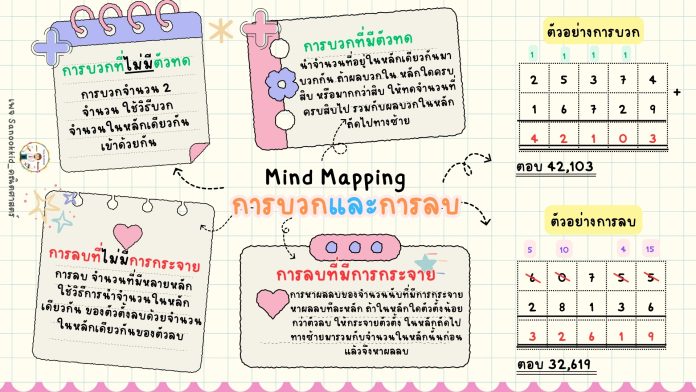 การบวกที่ไม่มีตัวทด
การบวกจำนวน 2
จำนวน ใช้วิธีบวก
จำนวนในหลักเดียวกัน
เข้าด้วยกัน
การบวกที่มีตัวทด
นำจำนวนที่อยู่ในหลักเดียวกันมา
บวกกัน ถ้าผลบวกใน หลักใดครบ
สิบ หรือมากกว่าสิบ ให้ทดจำนวนที่
ครบสิบไป รวมกับผลบวกในหลัก
ถัดไปทางซ้าย
ตัวอย่างการบวก
1 1 1 1
2 5 3 7 4
+
1 6 7 2 9
4 2 1 0 3
ตอบ 42,103
Mind Mapping
การบวกและการลบ
การลบที่ไม่มีการกระจาย
การลบ จำนวนที่มีหลายหลัก
ใช้วิธีการนำจำนวนในหลัก
เดียวกัน ของตัวตั้งลบด้วยจำนวน
ในหลักเดียวกันของตัวลบ
การลบที่มีการกระจาย
การหาผลลบของจำนวนนับที่มีการกระจาย
หาผลลบทีละหลัก ถ้าในหลักใดตัวตั้งน้อย
กว่าตัวลบ ให้กระจายตัวตั้ง ในหลักถัดไป
ทางซ้ายมารวมกับจำนวนในหลักนั้นก่อน
แล้วจึงหาผลลบ
ตัวอย่างการลบ
5 10 4 15
6 0 7 5 5
-
2 8 1 3 6
3 2 6 1 9
ตอบ 32,619
เพจ Sanookkid_คณิตศาสตร์